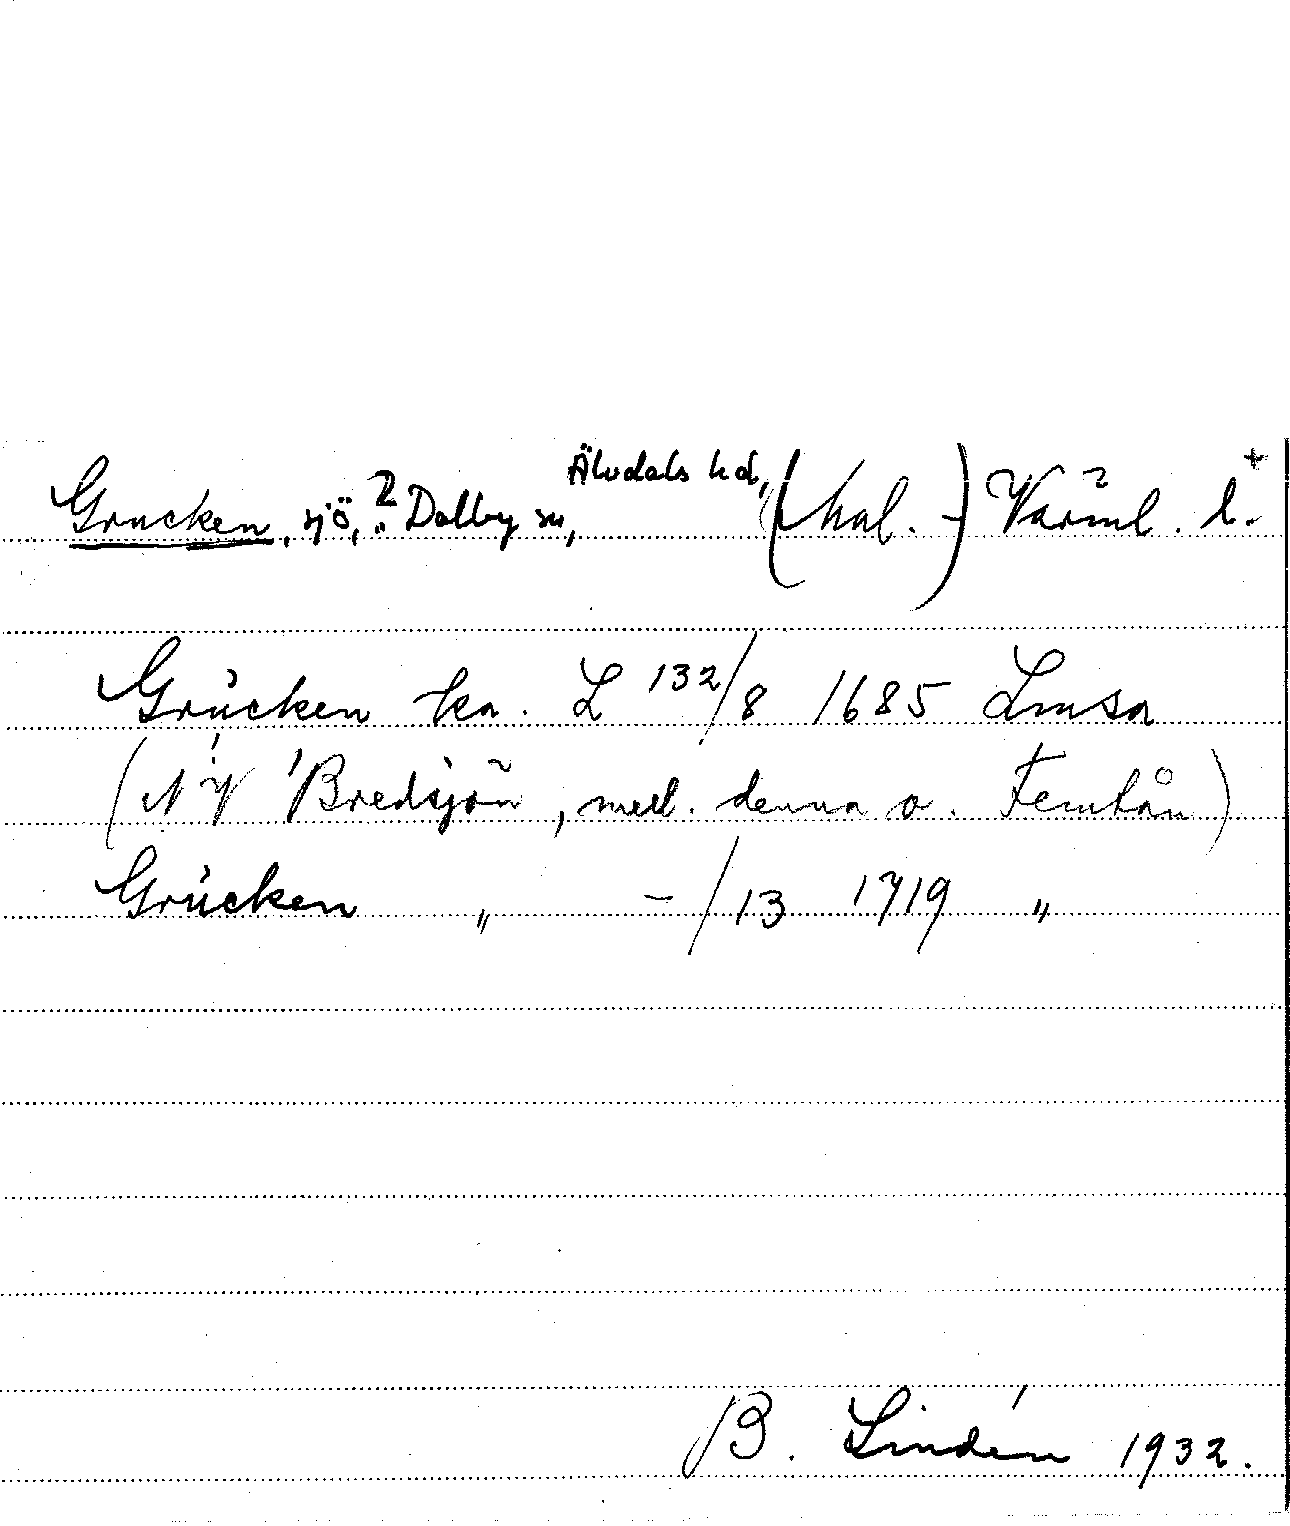 Grucken, sjö, ? Dalby sn, Älvdals hd, (Mal. -) Värml. l. +
Grucken ka. L 132/8 1685 Lmsa
(NV Bredsjön, mell. denna o. Femtån)
Grucken „ -/13 1719 „
B. Lindén 1932.